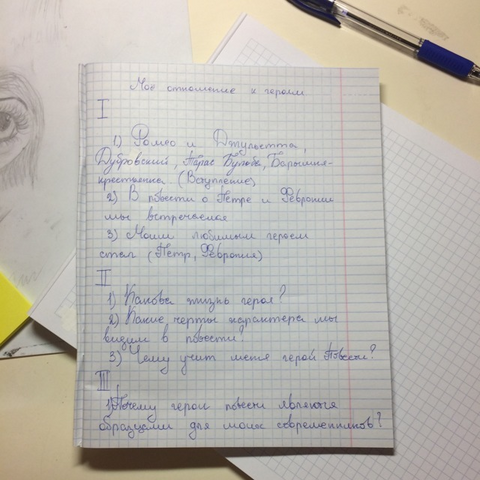 Моё отношение к героям
I
1) Ромео и Джульетта,
Дубровский, Тарас Бульба, Барышня-
крестьянка (Вступление)
2) В повести о Петре и Февронии
мы встречаемся
3) Моим любимым героем
стал (Петр, Феврония)
II
1) Какова жизнь героя?
2) Какие черты характера мы
видим в повести?
3) Чему учит меня герой повести?
III
1) Почему герои повести являются
образцами для моих современников?